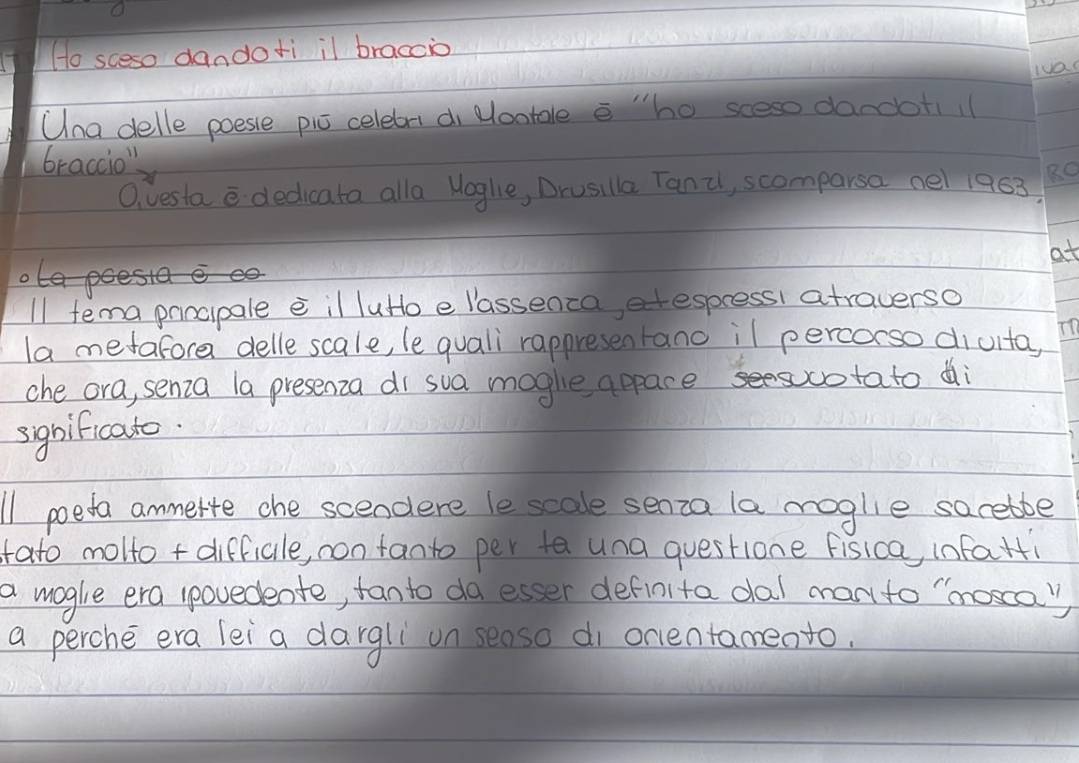 Ho sceso dandoti il braccio
Una delle poesie più celebri di Montale è "ho sceso dandoti il
braccio"
Questa è dedicata alla Moglie, Drusilla Tanzi, scomparsa nel 1963.
La poesia è co
Il tema principale è il lutto e l'assenza, espressi atraverso
la metafora delle scale, le quali rappresentano il percorso di vita,
che ora, senza la presenza di sua moglie, appare svuotato di
significato.
Il poeta ammette che scendere le scale senza la moglie sarebbe
tato molto + difficile, non tanto per una questione fisica, infatti
a moglie era ipovedente, tanto da esser definita dal marito "mosca",
a perché era lei a dargli un senso di orientamento.